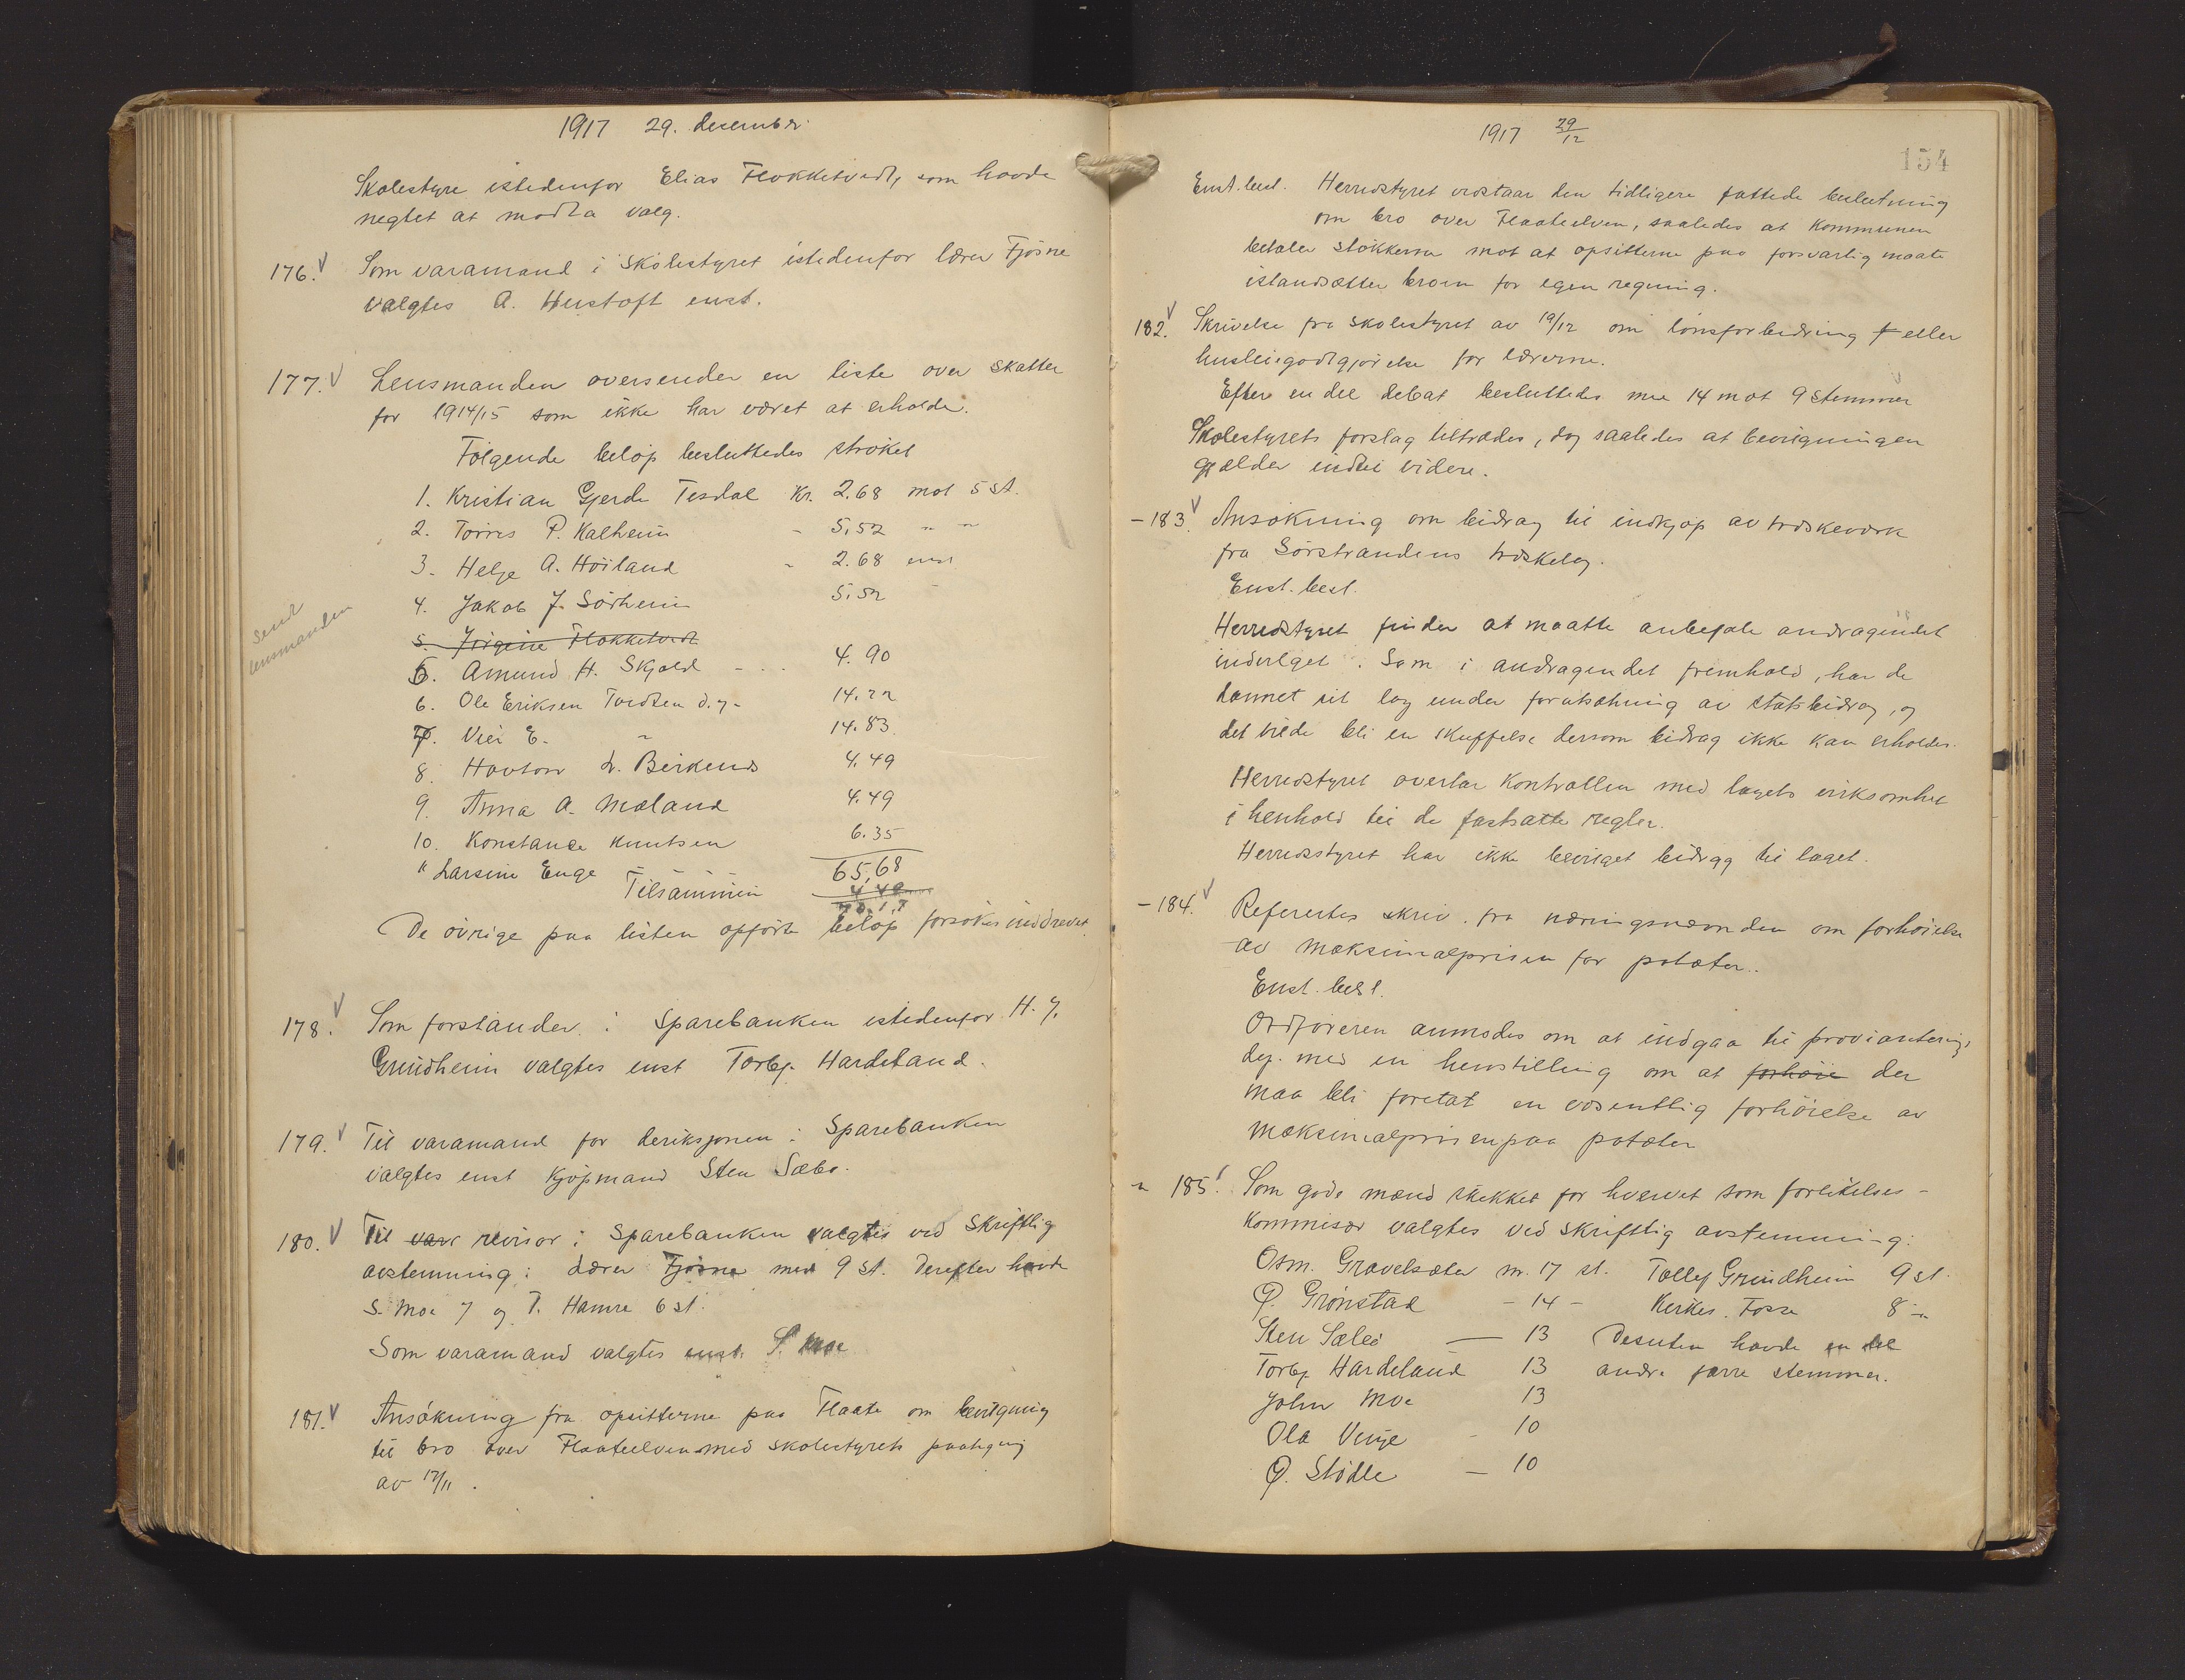 1917 29. december.
Skolestyre istedenfor Elias Flokketvedt, som havde
negtet at modta valg.
176. Som varamand i skolestyret istedenfor lærer Fjøsne
valgtes A. Hustoft enst.
177. Lensmanden oversender en liste over skatter
for 1914/15 som ikke har været at erholde.
Følgende beløp besluttedes strøket
1. Kristian Gjerde Tesdal Kr. 2.68 mot 5 st.
2. Torres P. Kalheim - 5,52 " "
3. Helge A. Höiland - 2.68 enst
4. Jakob J. Sörheim 5.52 -
5. Jörgine Flokketvedt
5. Amund H. Skjold - - - 4.90
send
lensmanden
6. Ole Eriksen Tvedten d.y. 14.22
7. Vier E. " 14.83
8. Hovtor L. Birkends 4.49
9. Anna A. Mæland 4.49
10. Konstance Knutsen 6.35
" Larsine Enge
Tilsammen 65,68
4.49
70.17
De övrige paa listen opförte belöp forsökes inddrevet.
178. Som forstander i Sparebanken istedenfor H. J.
Grindheim valgtes enst Torbj. Hardeland.
179. Til varamand for deriksjonen i Sparebanken
valgtes enst Kjöpmand Sten Sæbø.
180. Til vara revisor i Sparebanken valgtes ved skriftlig
avstemning: Lærer Fjøsne med 9 st. Derefter havde
S. Moe 7 og T. Hamre 6 st.
Som varamand valgtes enst. S. Moe
181. Ansökning fra opsitterne paa Flaate om bevilgning
til bro over Flaateelven med skolestyrets paategning
av 17/11.
1917 29/12
154
Enst. besl. Herredstyret vedtaar den tidligere fattede beslutning
om bro over Flaateelven, saaledes at kommunen
betaler stokkerne mot at opsitterne paa forsvarlig maate
istandsætter broen for egen regning.
182. Skrivelse fra skolestyret av 19/12 om lönsforbedring f eller
husleiegodtgjörelse for lærerne.
Efter en del debat besluttedes med 14 mot 9 stemmer
Skolestyrets forslag tiltrædes, dog saaledes at bevilgningen
gjælder indtil videre.
- 183. Ansökning om bidrag til indkjöp av træskeværk
fra Sörstrandens træskelag.
Enst. besl.
Herredstyret finder at maatte anbefale andragendet
indvilget. Som i andragendet fremhold, har de
dannet sit lag under forutsætning av statsbidrag, og
det vilde bli en skuffelse dersom bidrag ikke kan erholdes.
Herredstyret overtar kontrollen med lagets virksomhet
i henhold til de fastsatte regler.
Herredsstyret har ikke bevilget bidrag til laget.
- 184. Refereertes skriv. fra næringsnævnden om forhöielse
av maksimalprisen for poteter.
Enst. besl.
Ordföreren anmodes om at indgaa til provianterings
dep. med en henstilling om at forhöie der
maa bli foretat en væsentlig forhöielse av
maksimalprisen paa poteter
" 185. Som gode mænd skikket for hvervet som forlikelses-
kommisær valgtes ved skriftlig avstemning:
Osm. Gravelsæter m. 17 st. Tollef Grindheim 9 st.
P. Grönstad - 14 - Kirkes. Fosse 8 "
Sten Sælei — 13 Desuten havde en del
Torbj. Hardeland 13 andre færre stemmer.
John Moe 13
Ola Vinje - 10
P. Stödle — 10